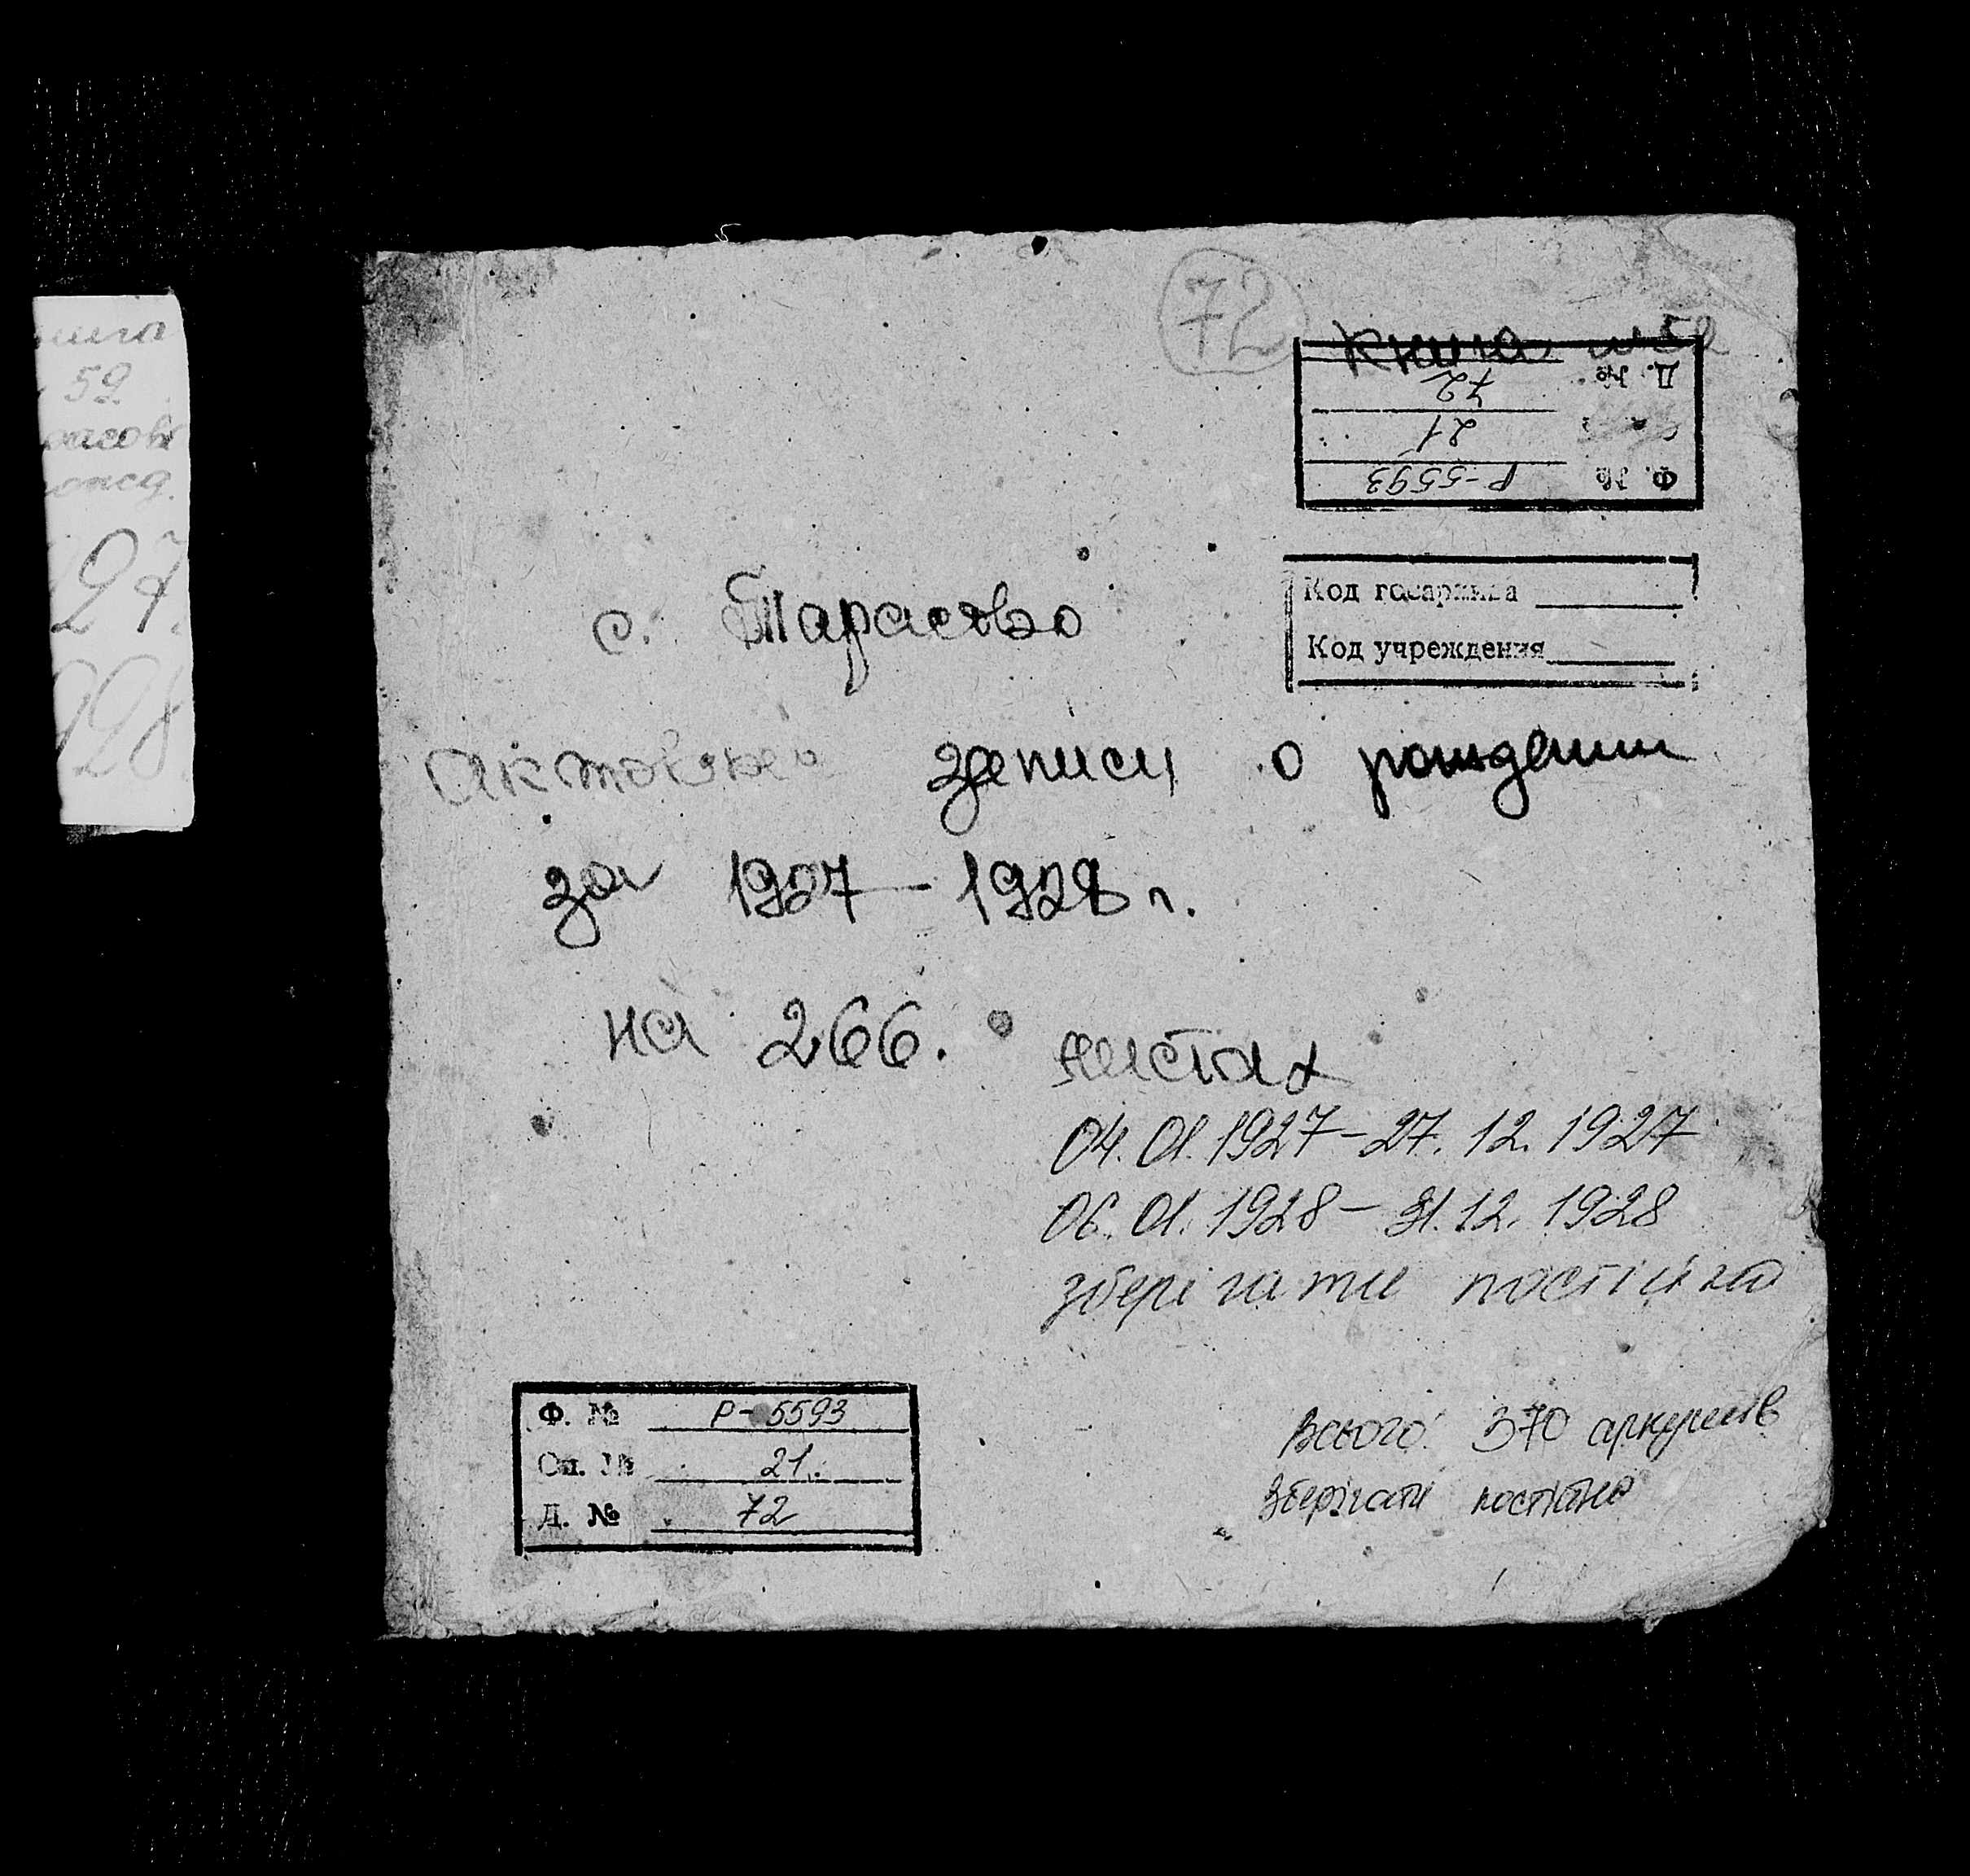 72
Книга № 59
Д. № 72
21
Ф. № Р-5593
Код госархива
Код учреждения
с. Тарасово
Актовые записи о рождении
за 1927 - 1928 г.
на 266. листах
04.01.1927 - 27.12.1927
06.01.1928 - 31.12.1928
зберігати постійно
Ф. № Р-5593
Оп. № 21.
Д. № 72
Всього: 370 аркушів
Зберігати постійно
59